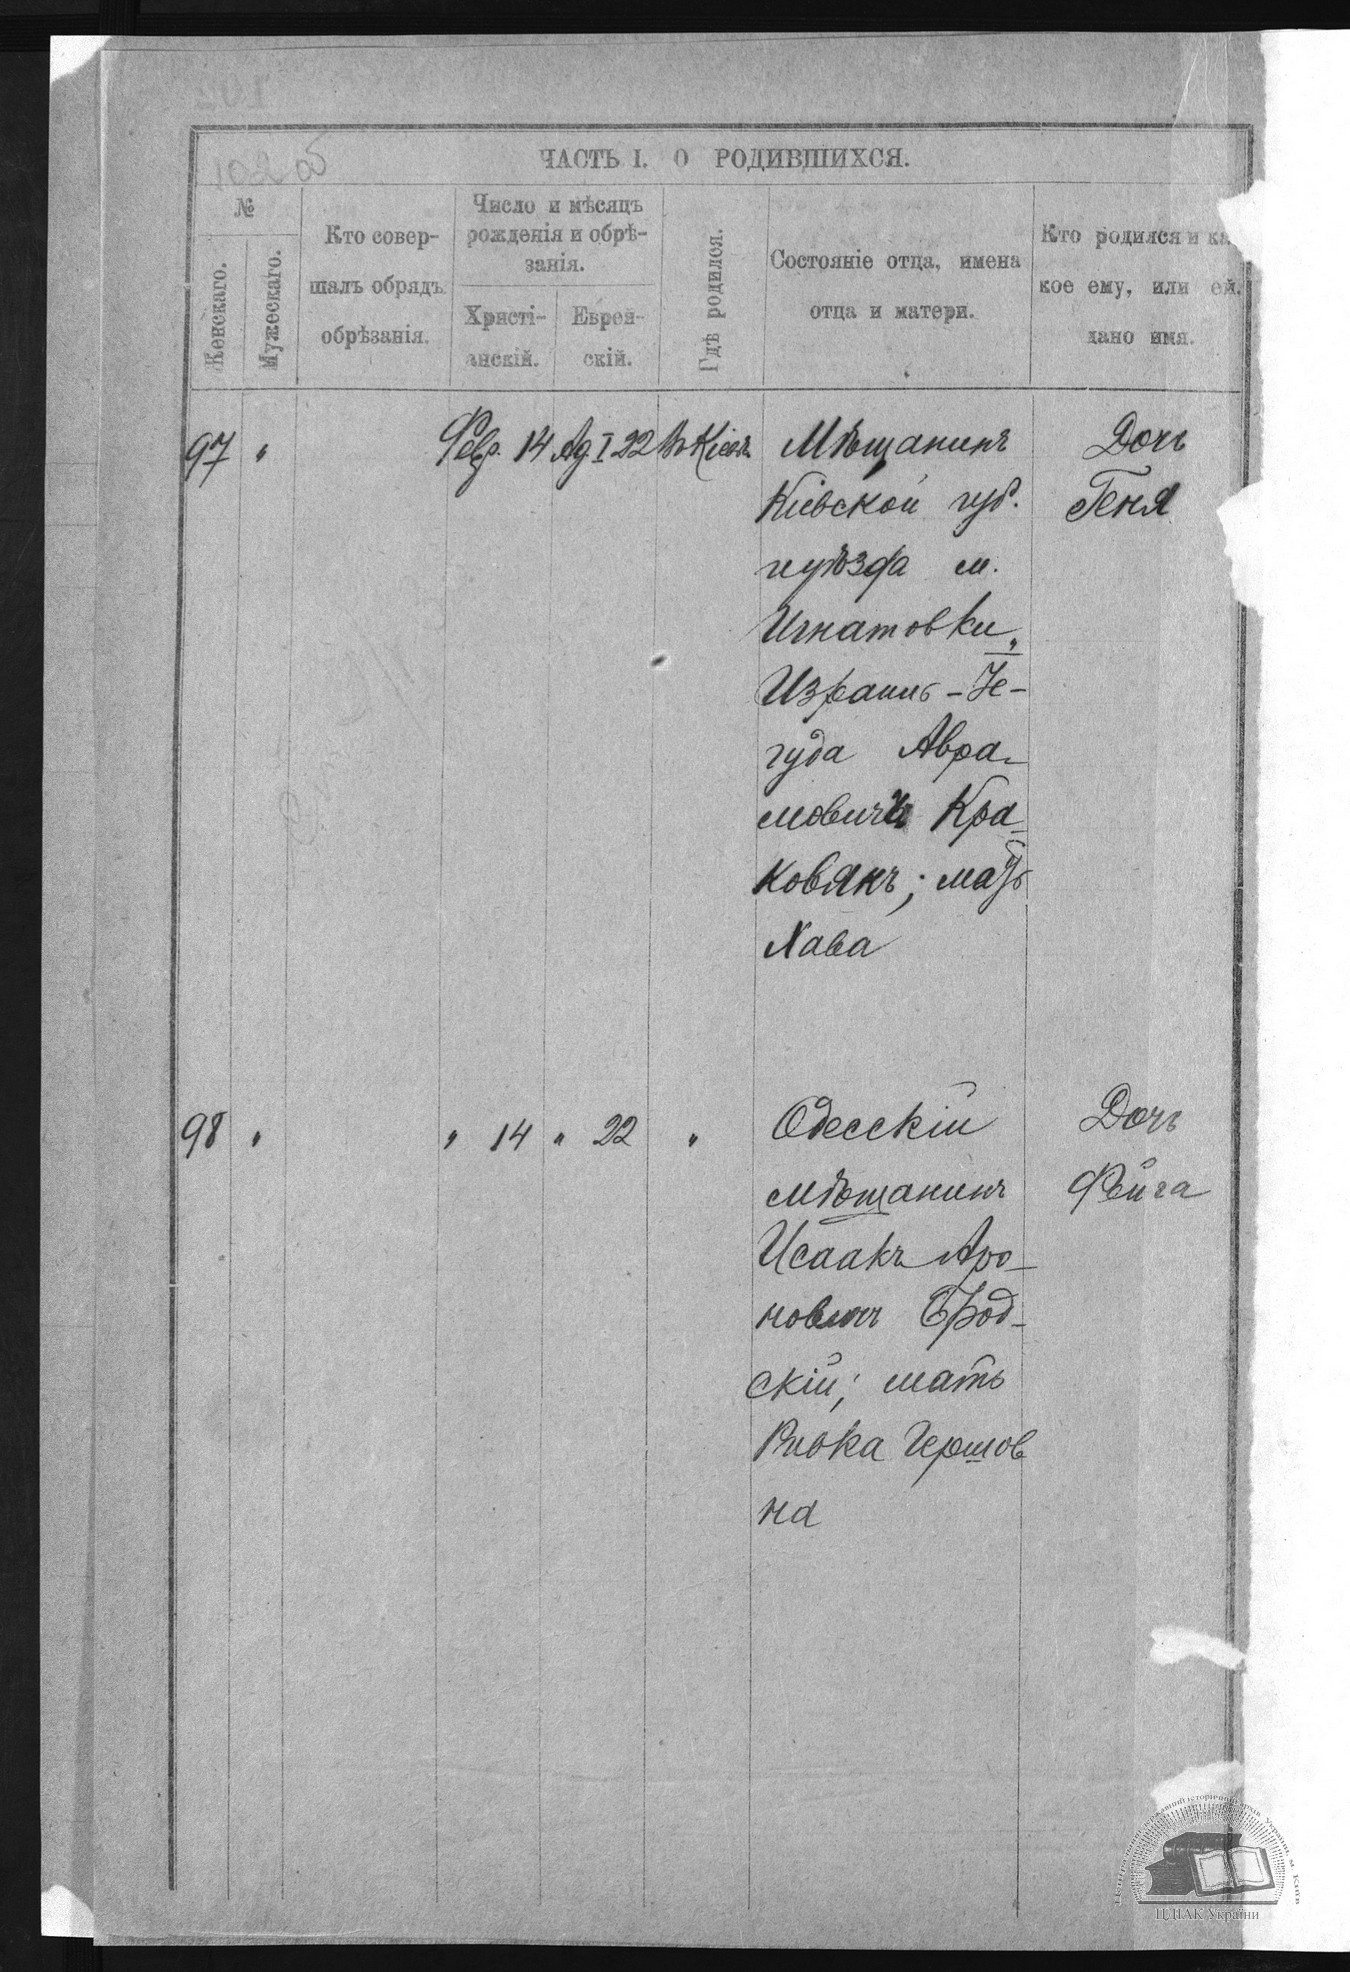 102 об
ЧАСТЬ I. О РОДИВШИХСЯ.
№
Женскаго.
Мужескаго.
Кто совер-
шалъ обрядъ
обрѣзанія.
Число и мѣсяцъ
рожденія и обрѣ-
занія.
Христі-
анскій.
Еврей-
скій.
Гдѣ родился.
Состояніе отца, имена
отца и матери.
Кто родился и ка
кое ему, или ей.
дано имя.
97 " Февр. 14 Ад. I 22 Въ Кіевѣ
Мѣщанинъ
Кіевской губ.
и уѣзда м.
Игнатовки
Израиль-Іе-
гуда Авра-
мовичъ Кра-
ковякъ; мать
Хава
Дочь
Геня
98 " " 14 " 22 "
Одесскій
мѣщанинъ
Исаакъ Аро-
новичъ Брод-
скій; мать
Ривка Гершов
на
Дочь
Фейга
ЦДІАК України